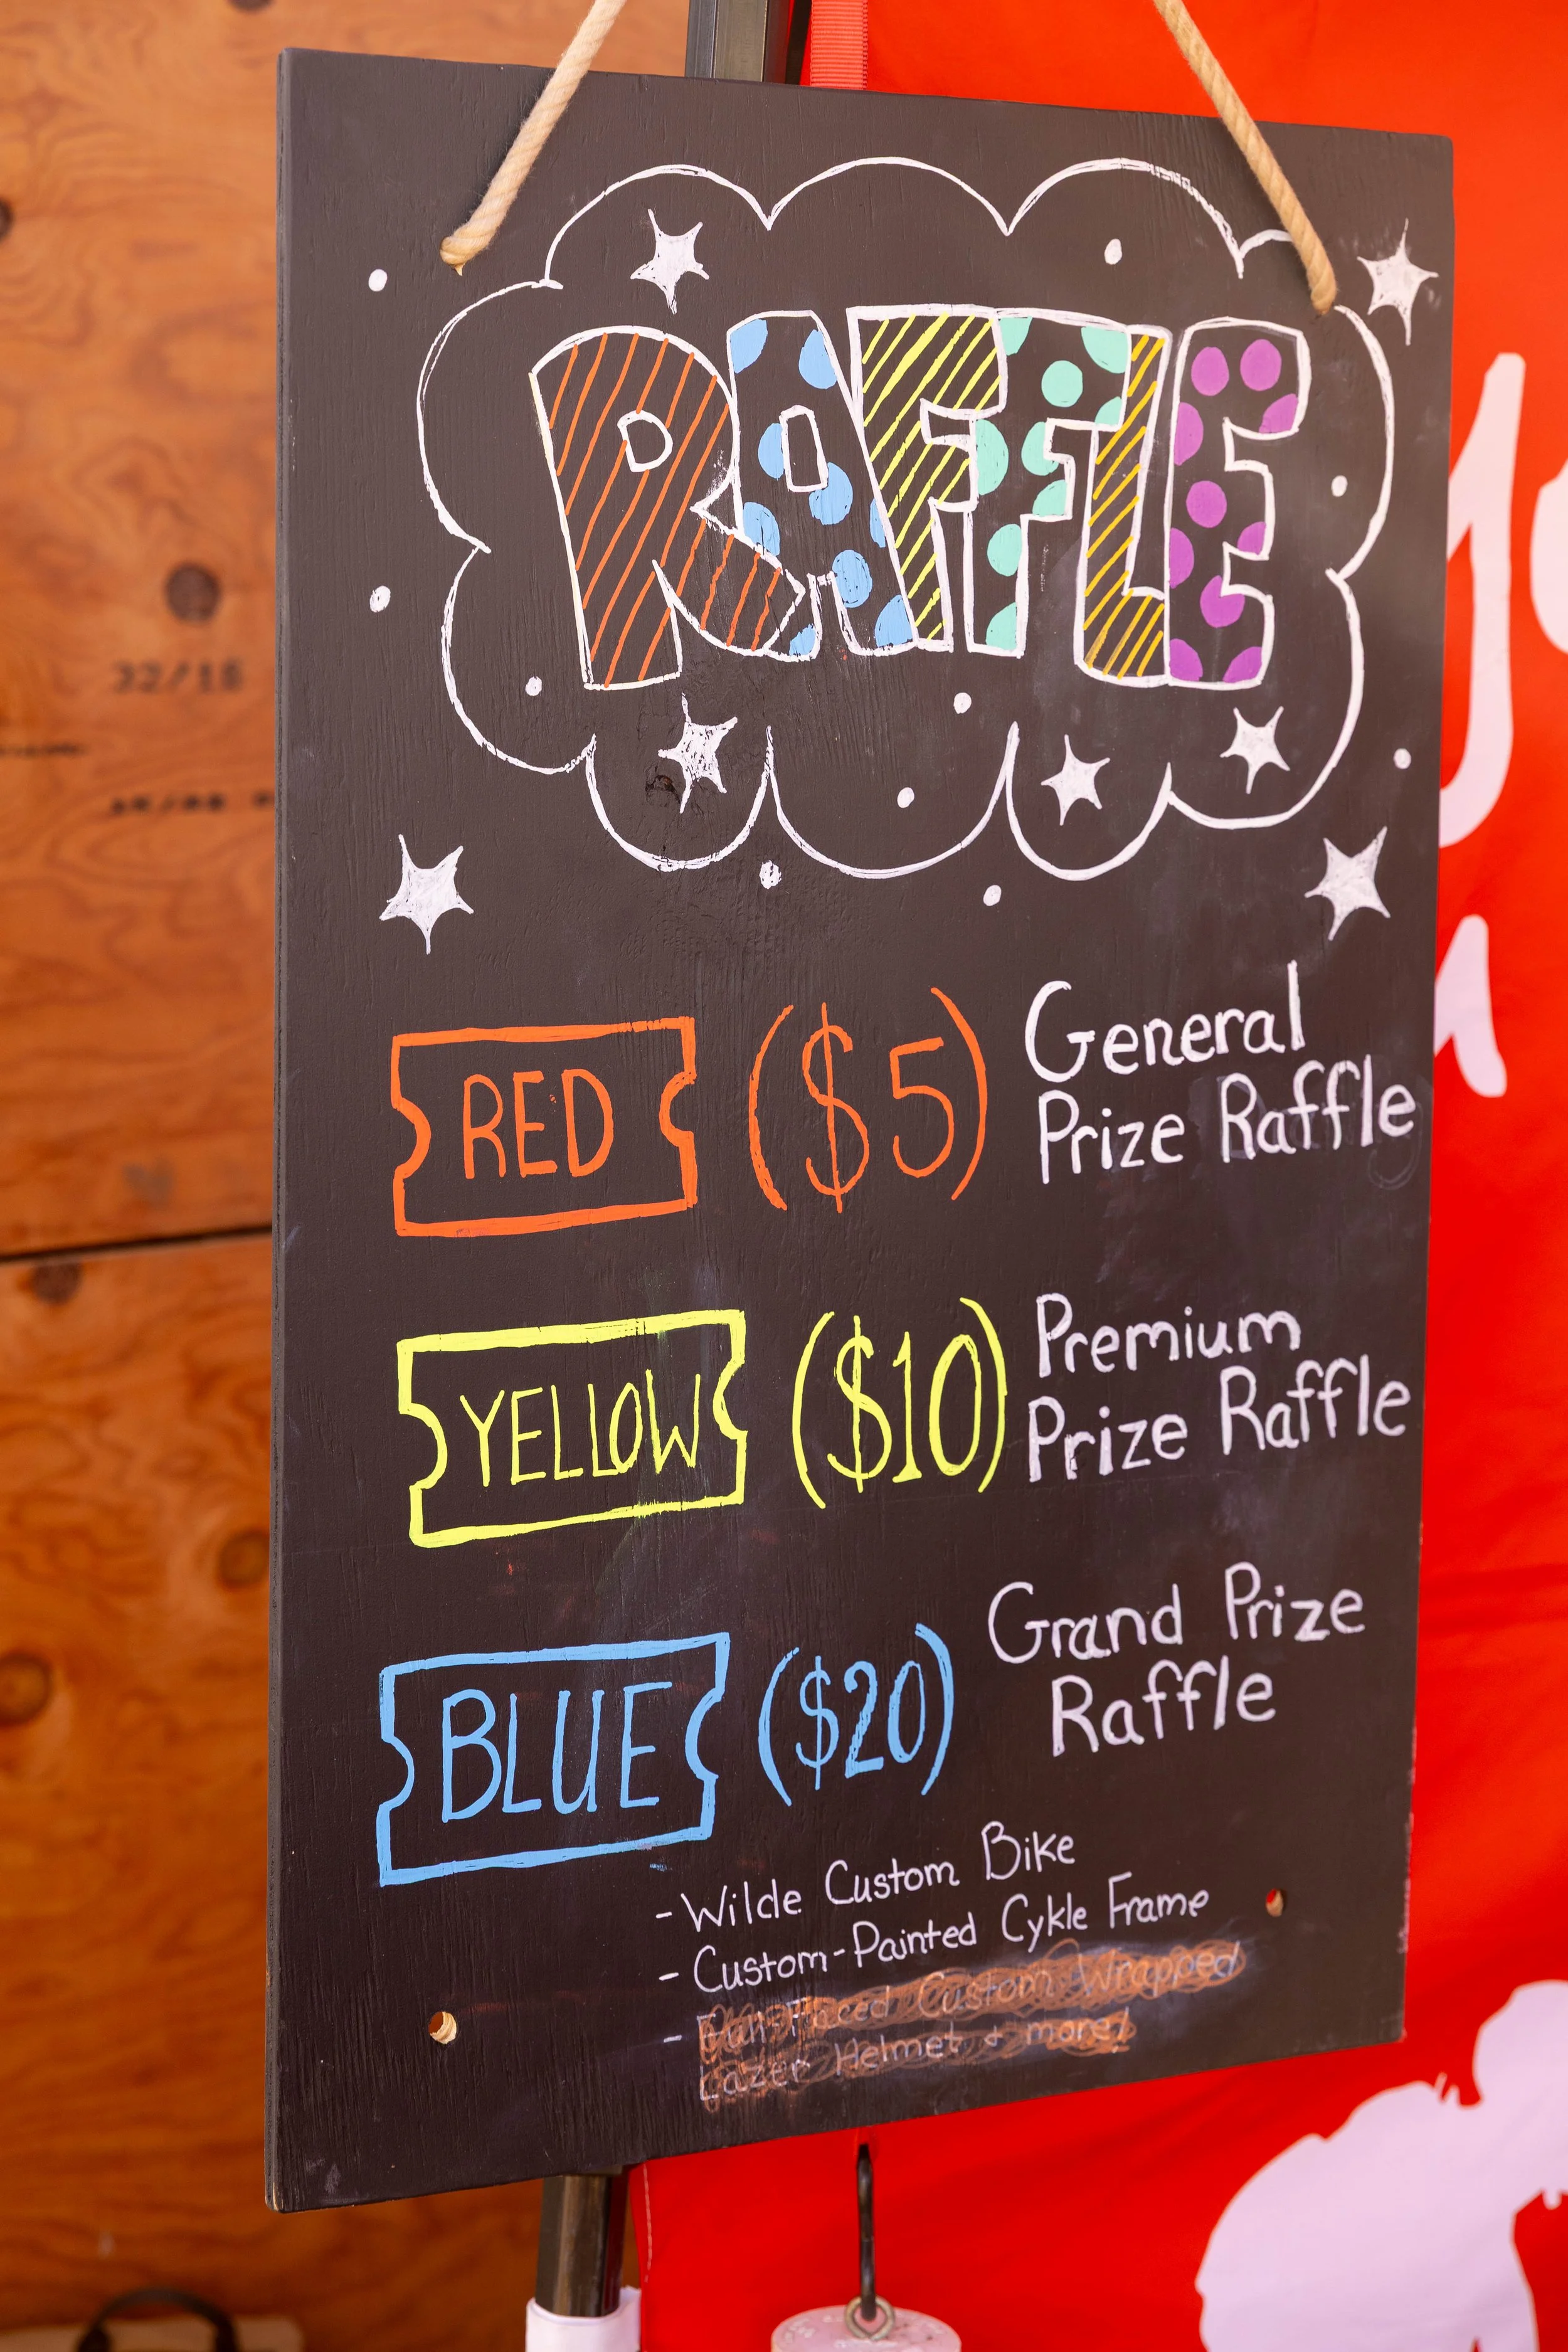 RAFFLE
RED ($5) General
Prize Raffle
YELLOW ($10) Premium
Prize Raffle
BLUE ($20) Grand Prize
Raffle
- Wilde Custom Bike
- Custom-Painted Cykle Frame
- Full-Faced Custom Wrapped
Lazer Helmet & more!
32/16